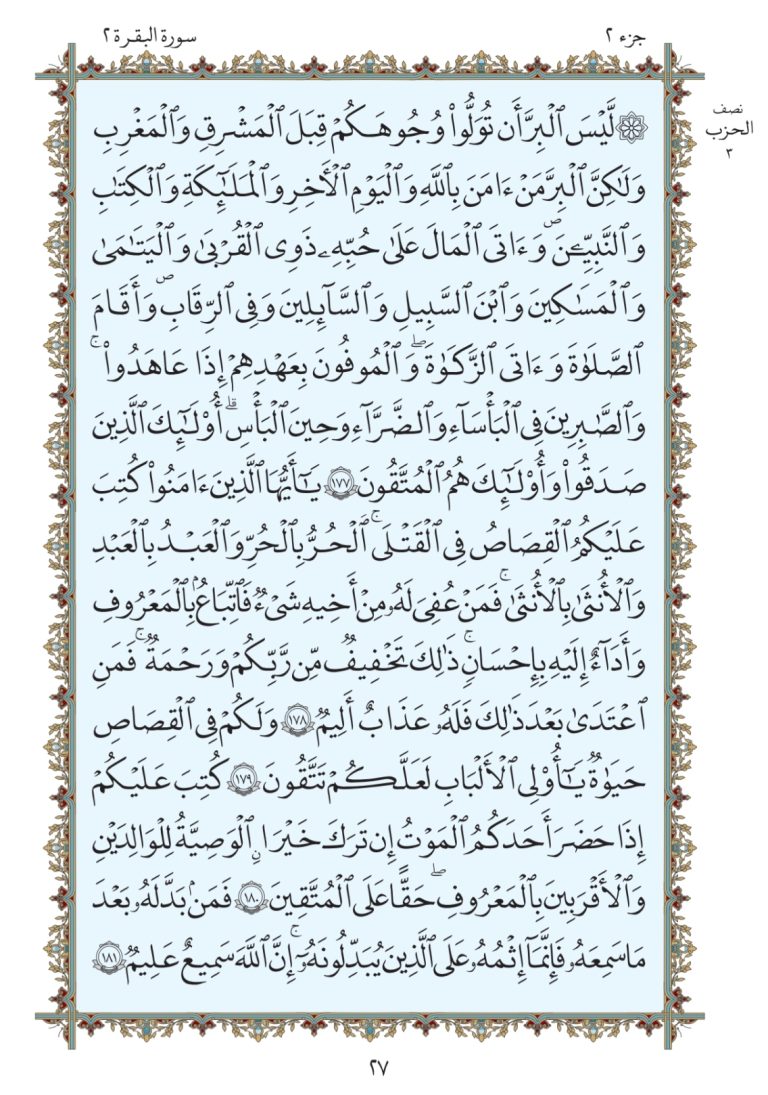 سورة البقرة ٢
جزء ٢
نصف
الحزب
٣
۞ لَّيۡسَ ٱلۡبِرَّ أَن تُوَلُّواْ وُجُوهَكُمۡ قِبَلَ ٱلۡمَشۡرِقِ وَٱلۡمَغۡرِبِ
وَلَٰكِنَّ ٱلۡبِرَّ مَنۡ ءَامَنَ بِٱللَّهِ وَٱلۡيَوۡمِ ٱلۡأٓخِرِ وَٱلۡمَلَٰٓئِكَةِ وَٱلۡكِتَٰبِ
وَٱلنَّبِيِّـۧنَ ۖ وَءَاتَى ٱلۡمَالَ عَلَىٰ حُبِّهِۦ ذَوِي ٱلۡقُرۡبَىٰ وَٱلۡيَتَٰمَىٰ
وَٱلۡمَسَٰكِينَ وَٱبۡنَ ٱلسَّبِيلِ وَٱلسَّآئِلِينَ وَفِي ٱلرِّقَابِ ۖ وَأَقَامَ
ٱلصَّلَوٰةَ وَءَاتَى ٱلزَّكَوٰةَ ۖ وَٱلۡمُوفُونَ بِعَهۡدِهِمۡ إِذَا عَاهَدُواْ ۚ
وَٱلصَّٰبِرِينَ فِي ٱلۡبَأۡسَآءِ وَٱلضَّرَّآءِ وَحِينَ ٱلۡبَأۡسِ ۗ أُوْلَٰٓئِكَ ٱلَّذِينَ
صَدَقُواْ وَأُوْلَٰٓئِكَ هُمُ ٱلۡمُتَّقُونَ ١٧٧ يَٰٓأَيُّهَا ٱلَّذِينَ ءَامَنُواْ كُتِبَ
عَلَيۡكُمُ ٱلۡقِصَاصُ فِي ٱلۡقَتۡلَى ۚ ٱلۡحُرُّ بِٱلۡحُرِّ وَٱلۡعَبۡدُ بِٱلۡعَبۡدِ
وَٱلۡأُنثَىٰ بِٱلۡأُنثَىٰ ۚ فَمَنۡ عُفِيَ لَهُۥ مِنۡ أَخِيهِ شَيۡءٞ فَٱتِّبَاعُۢ بِٱلۡمَعۡرُوفِ
وَأَدَآءٌ إِلَيۡهِ بِإِحۡسَٰنٖ ۚ ذَٰلِكَ تَخۡفِيفٞ مِّن رَّبِّكُمۡ وَرَحۡمَةٞ ۚ فَمَنِ
ٱعۡتَدَىٰ بَعۡدَ ذَٰلِكَ فَلَهُۥ عَذَابٌ أَلِيمٞ ١٧٨ وَلَكُمۡ فِي ٱلۡقِصَاصِ
حَيَوٰةٞ يَٰٓأُوْلِي ٱلۡأَلۡبَٰبِ لَعَلَّكُمۡ تَتَّقُونَ ١٧٩ كُتِبَ عَلَيۡكُمۡ
إِذَا حَضَرَ أَحَدَكُمُ ٱلۡمَوۡتُ إِن تَرَكَ خَيۡرًا ٱلۡوَصِيَّةُ لِلۡوَٰلِدَيۡنِ
وَٱلۡأَقۡرَبِينَ بِٱلۡمَعۡرُوفِ ۖ حَقًّا عَلَى ٱلۡمُتَّقِينَ ١٨٠ فَمَنۢ بَدَّلَهُۥ بَعۡدَ
مَا سَمِعَهُۥ فَإِنَّمَآ إِثۡمُهُۥ عَلَى ٱلَّذِينَ يُبَدِّلُونَهُۥٓ ۚ إِنَّ ٱللَّهَ سَمِيعٌ عَلِيمٞ ١٨١
٢٧